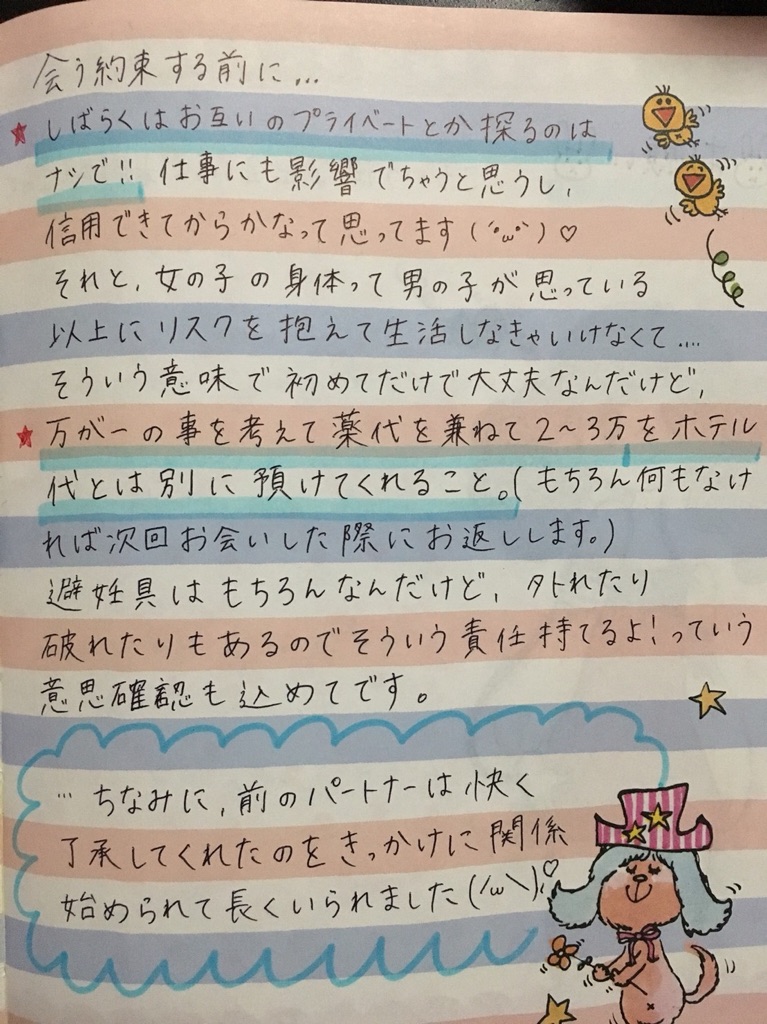 会う約束する前に...
★しばらくはお互いのプライベートとか探るのは
ナシで!! 仕事にも影響でちゃうと思うし、
信用できてからかなって思ってます(´•ω•`)♡
それと、女の子の身体って男の子が思っている
以上にリスクを抱えて生活しなきゃいけなくて....
そういう意味で初めてだけで大丈夫なんだけど、
★万が一の事を考えて薬代を兼ねて2〜3万をホテル
代とは別に預けてくれること。(もちろん何もなけ
れば次回お会いした際にお返しします。)
避妊具はもちろんなんだけど、外れたり
破れたりもあるのでそういう責任持てるよ!っていう
意思確認も込めてです。
...ちなみに、前のパートナーは快く
了承してくれたのをきっかけに関係
始められて長くいられました(/ω\)♡